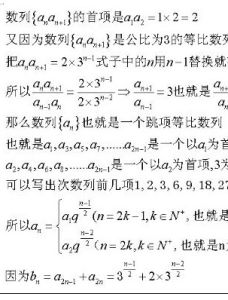 数列{aₙaₙ₊₁}的首项是a₁a₂=1×2=2
又因为数列{aₙaₙ₊₁}是公比为3的等比数
把aₙaₙ₊₁=2×3ⁿ⁻¹式子中的n用n-1替换就
所以 aₙaₙ₊₁/aₙ₋₁aₙ = 2×3ⁿ⁻¹/2×3ⁿ⁻² ⇒ aₙ₊₁/aₙ₋₁ = 3也就是
那么数列{aₙ}也就是一个跳项等比数列
也就是a₁,a₃,a₅,a₇,......a₂ₙ₋₁是一个以a₁为首
a₂,a₄,a₆,a₈,......a₂ₙ是一个以a₂为首项,3为
可以写出次数列前几项1,2,3,6,9,18,27
所以aₙ= { a₁q^((n-1)/2) (n=2k-1,k∈N⁺,也就是
a₂q^((n-2)/2) (n=2k,k∈N⁺,也就是n
因为bₙ=a₂ₙ₋₁+a₂ₙ=3^((n-1)/2)+2×3^((n-2)/2)